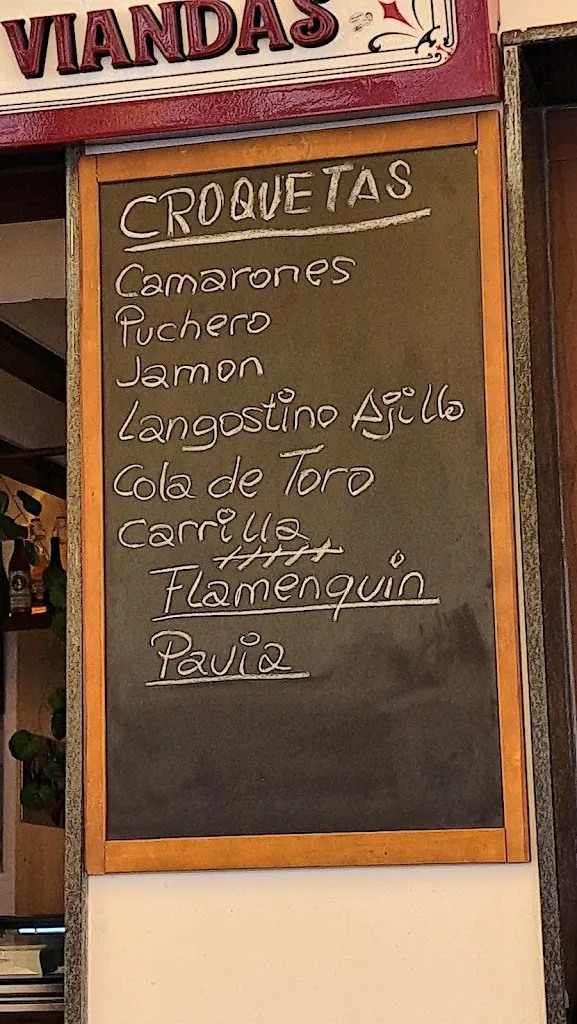 VIANDAS
CROQUETAS
Camarones
Puchero
Jamon
Langostino Ajillo
Cola de Toro
Carrilla
Flamenquin
Pavia